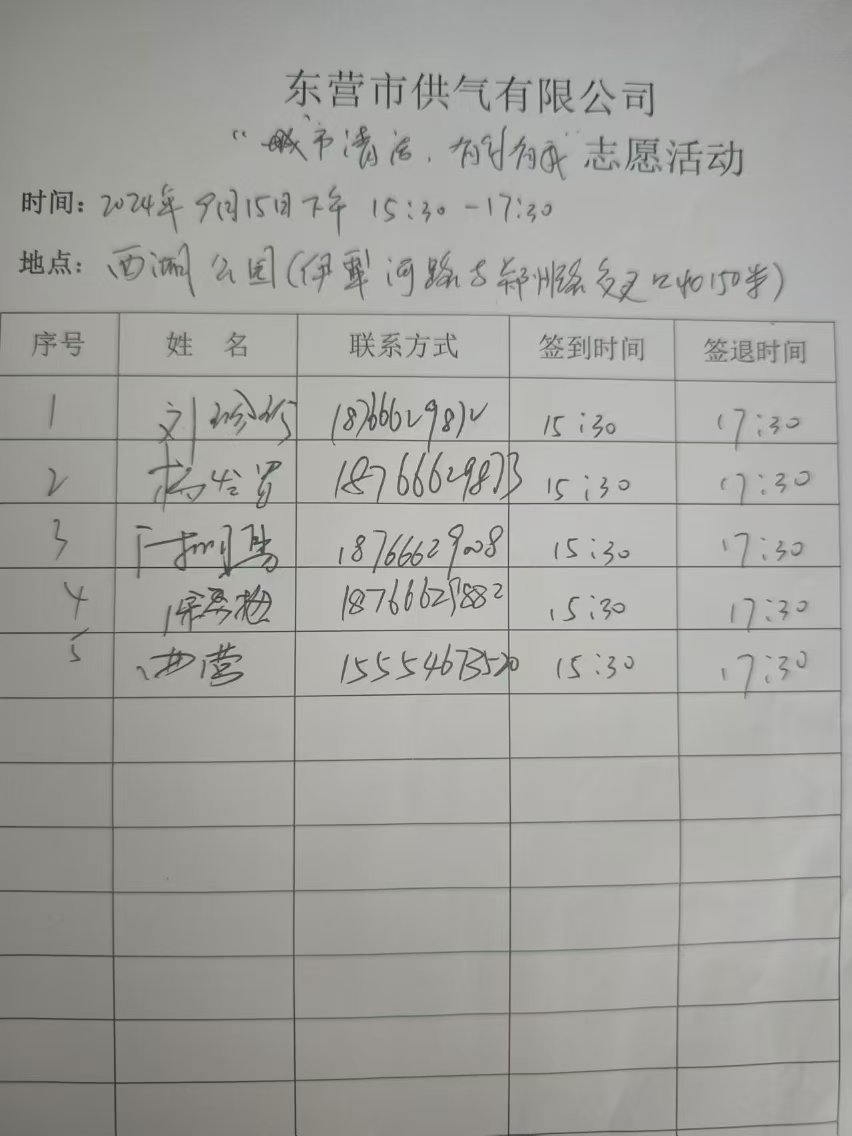 东营市供气有限公司
“城市清洁，有你有我”志愿活动
时间：2024年9月15日下午 15:30-17:30
地点：西湖公园(伊犁河路与郑州路交叉口
序号 姓名 联系方式 签到时间 签退时间
1 刘 15:30 17:30
2 杨 18766629873 15:30 17:30
3 18766629008 15:30 17:30
4 18766629882 15:30 17:30
5 15554673520 15:30 17:30